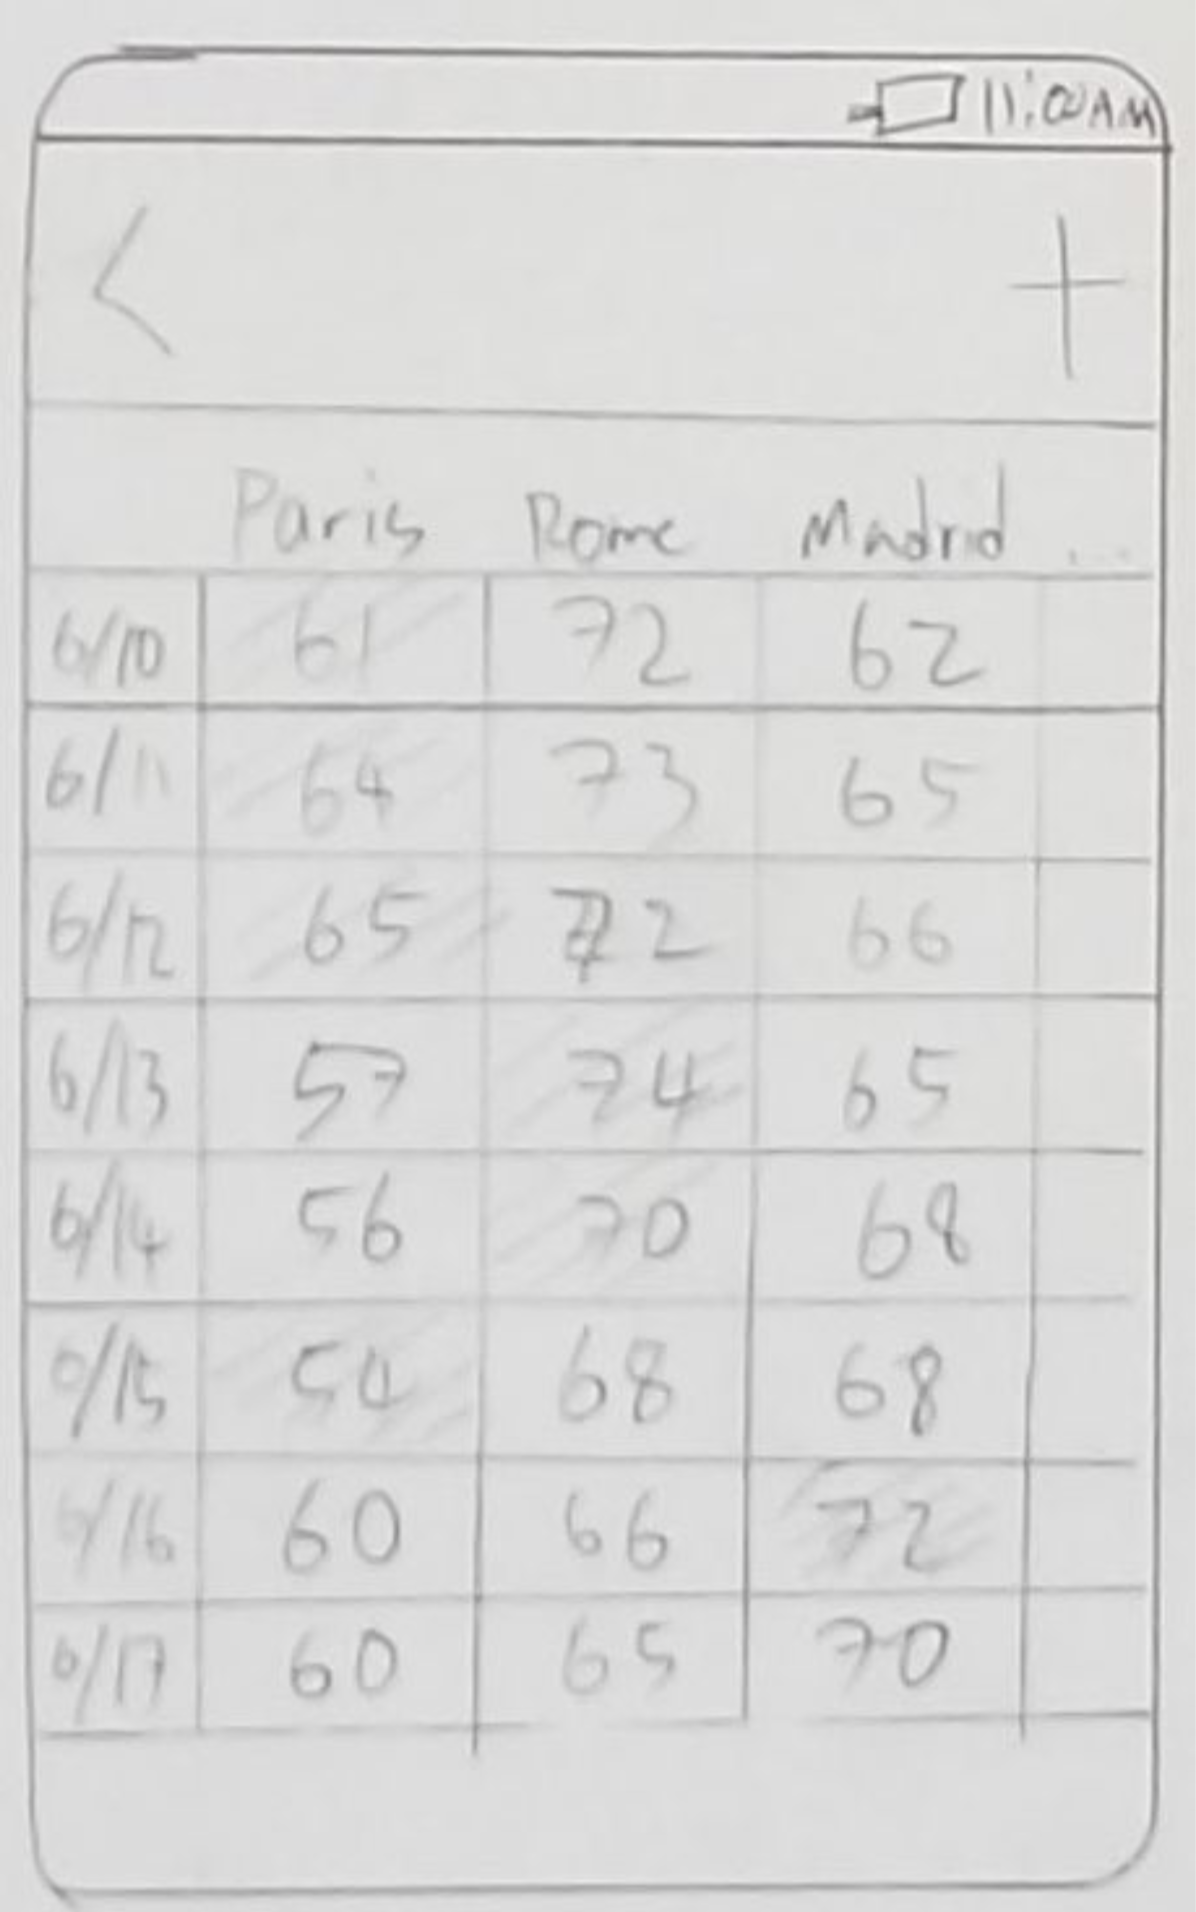 11:00AM
< +
Paris Rome Madrid ...
6/10 61 72 62
6/11 64 73 65
6/12 65 72 66
6/13 57 74 65
6/14 56 70 68
6/15 54 68 68
6/16 60 66 72
6/17 60 65 70